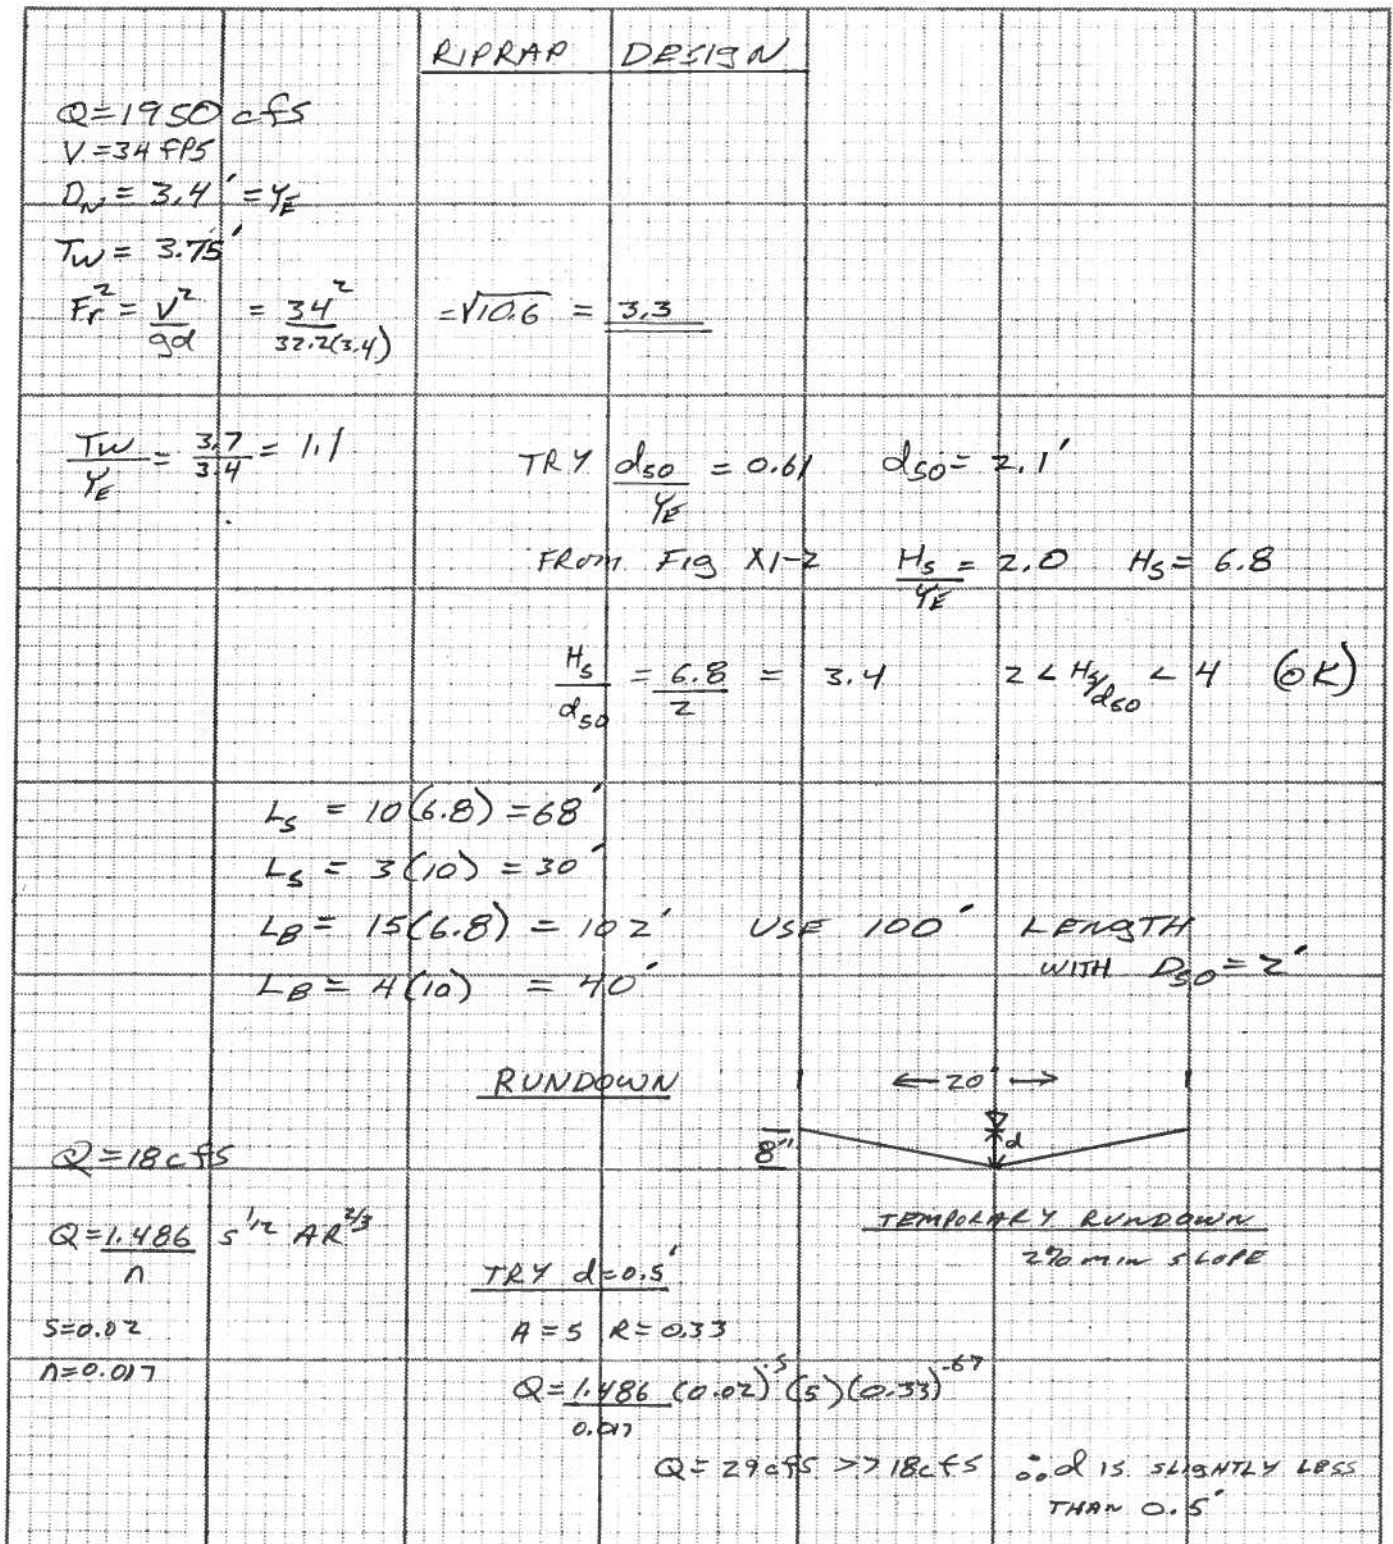 RIPRAP DESIGN
Q=1950 cfs
V=34 FPS
D_N = 3.4' = Y_E
TW = 3.75'
Fr² = V²/gd = 34²/32.2(3.4) = √10.6 = 3.3
TW/Y_E = 3.7/3.4 = 1.1 TRY d50/Y_E = 0.61 d50 = 2.1'
FROM Fig XI-2 Hs/Y_E = 2.0 Hs = 6.8
Hs/d50 = 6.8/2 = 3.4 2 < Hs/d50 < 4 (OK)
Ls = 10(6.8) = 68'
Ls = 3(10) = 30'
LB = 15(6.8) = 102' USE 100' LENGTH
WITH D50 = 2'
LB = 4(10) = 40'
RUNDOWN
← 20' →
d
8"
Q=18cfs
TEMPORARY RUNDOWN
2% min SLOPE
Q = 1.486/n s^1/2 AR^2/3
TRY d=0.5'
S=0.02
A=5 R=0.33
n=0.017
Q = 1.486/0.017 (0.02)^.5 (5)(0.33)^.67
Q = 29cfs >> 18cfs ∴ d IS SLIGHTLY LESS
THAN 0.5'